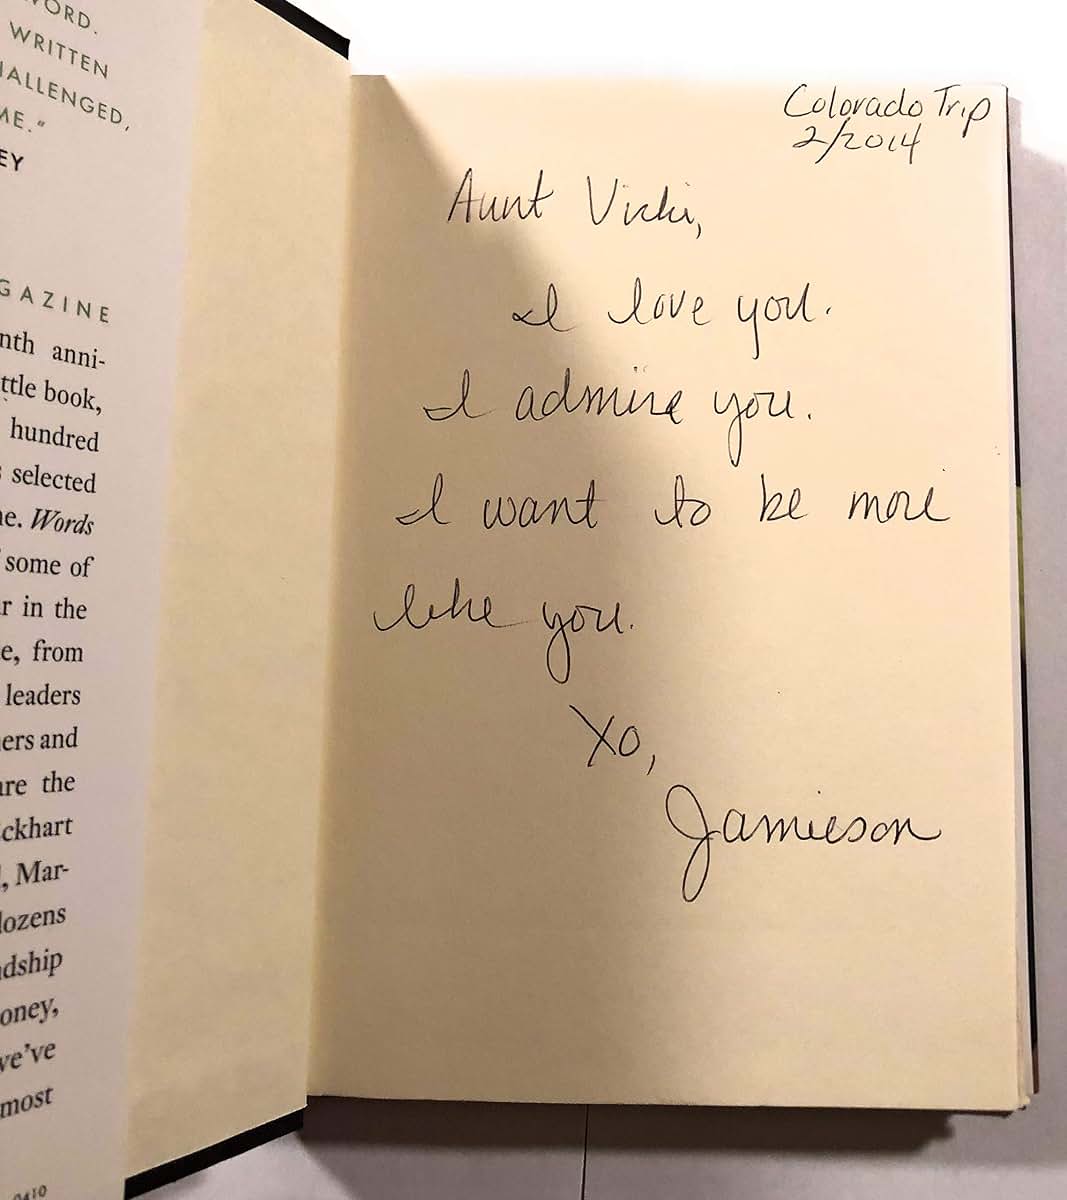 WORD.
WRITTEN
HALLENGED,
ME."
EY
GAZINE
nth anni-
ttle book,
hundred
selected
ne. Words
some of
r in the
e, from
leaders
ers and
are the
ckhart
, Mar-
dozens
dship
oney,
we've
most
0410
Colorado Trip
2/2014
Aunt Vicki,
I love you.
I admire you.
I want to be more
like you.
Xo,
Jamieson